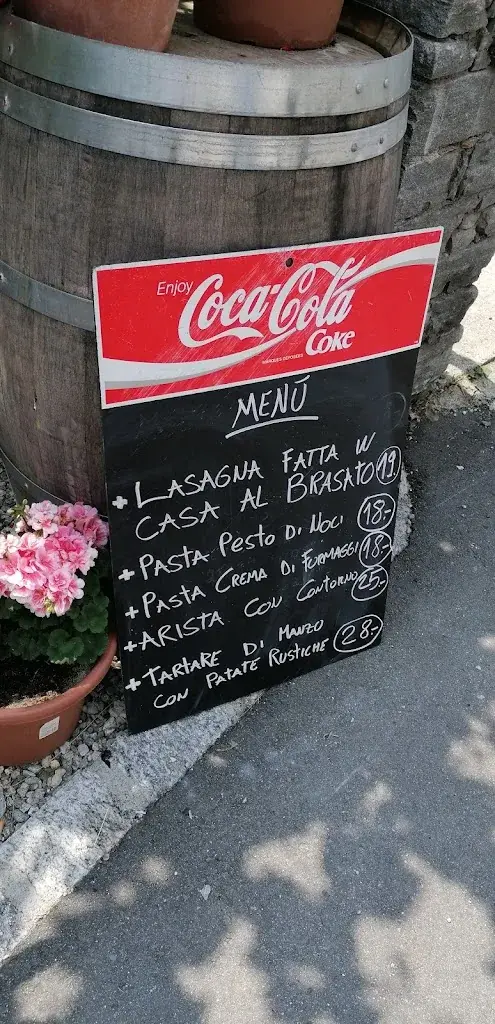 Enjoy
Coca-Cola
Coke
MARQUES DEPOSEES
MENÚ
+ LASAGNA FATTA IN
CASA AL BRASATO 19.-
+ PASTA PESTO DI NOCI 18.-
+ PASTA CREMA DI FORMAGGI 18.-
+ ARISTA CON CONTORNO 25.-
+ TARTARE DI MANZO
CON PATATE RUSTICHE 28.-